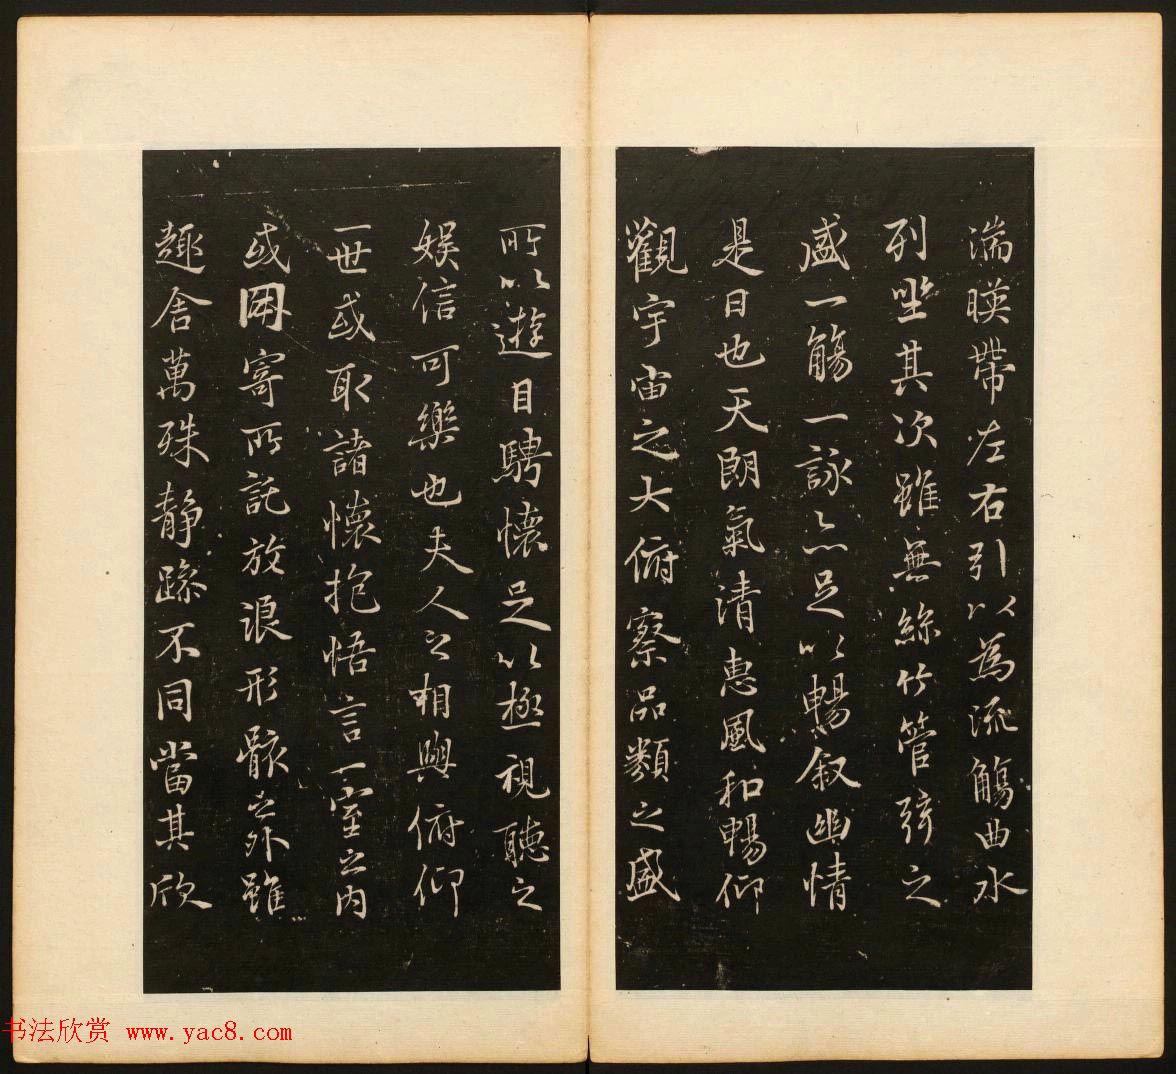 湍暎帶左右引以為流觴曲水
列坐其次雖無絲竹管弦之
盛一觴一詠亦足以暢叙幽情
是日也天朗氣清惠風和暢仰
觀宇宙之大俯察品類之盛
所以遊目騁懷足以極視聽之
娛信可樂也夫人之相與俯仰
一世或取諸懷抱悟言一室之內
或因寄所託放浪形骸之外雖
趣舍萬殊静躁不同當其欣
书法欣赏 www.yac8.com